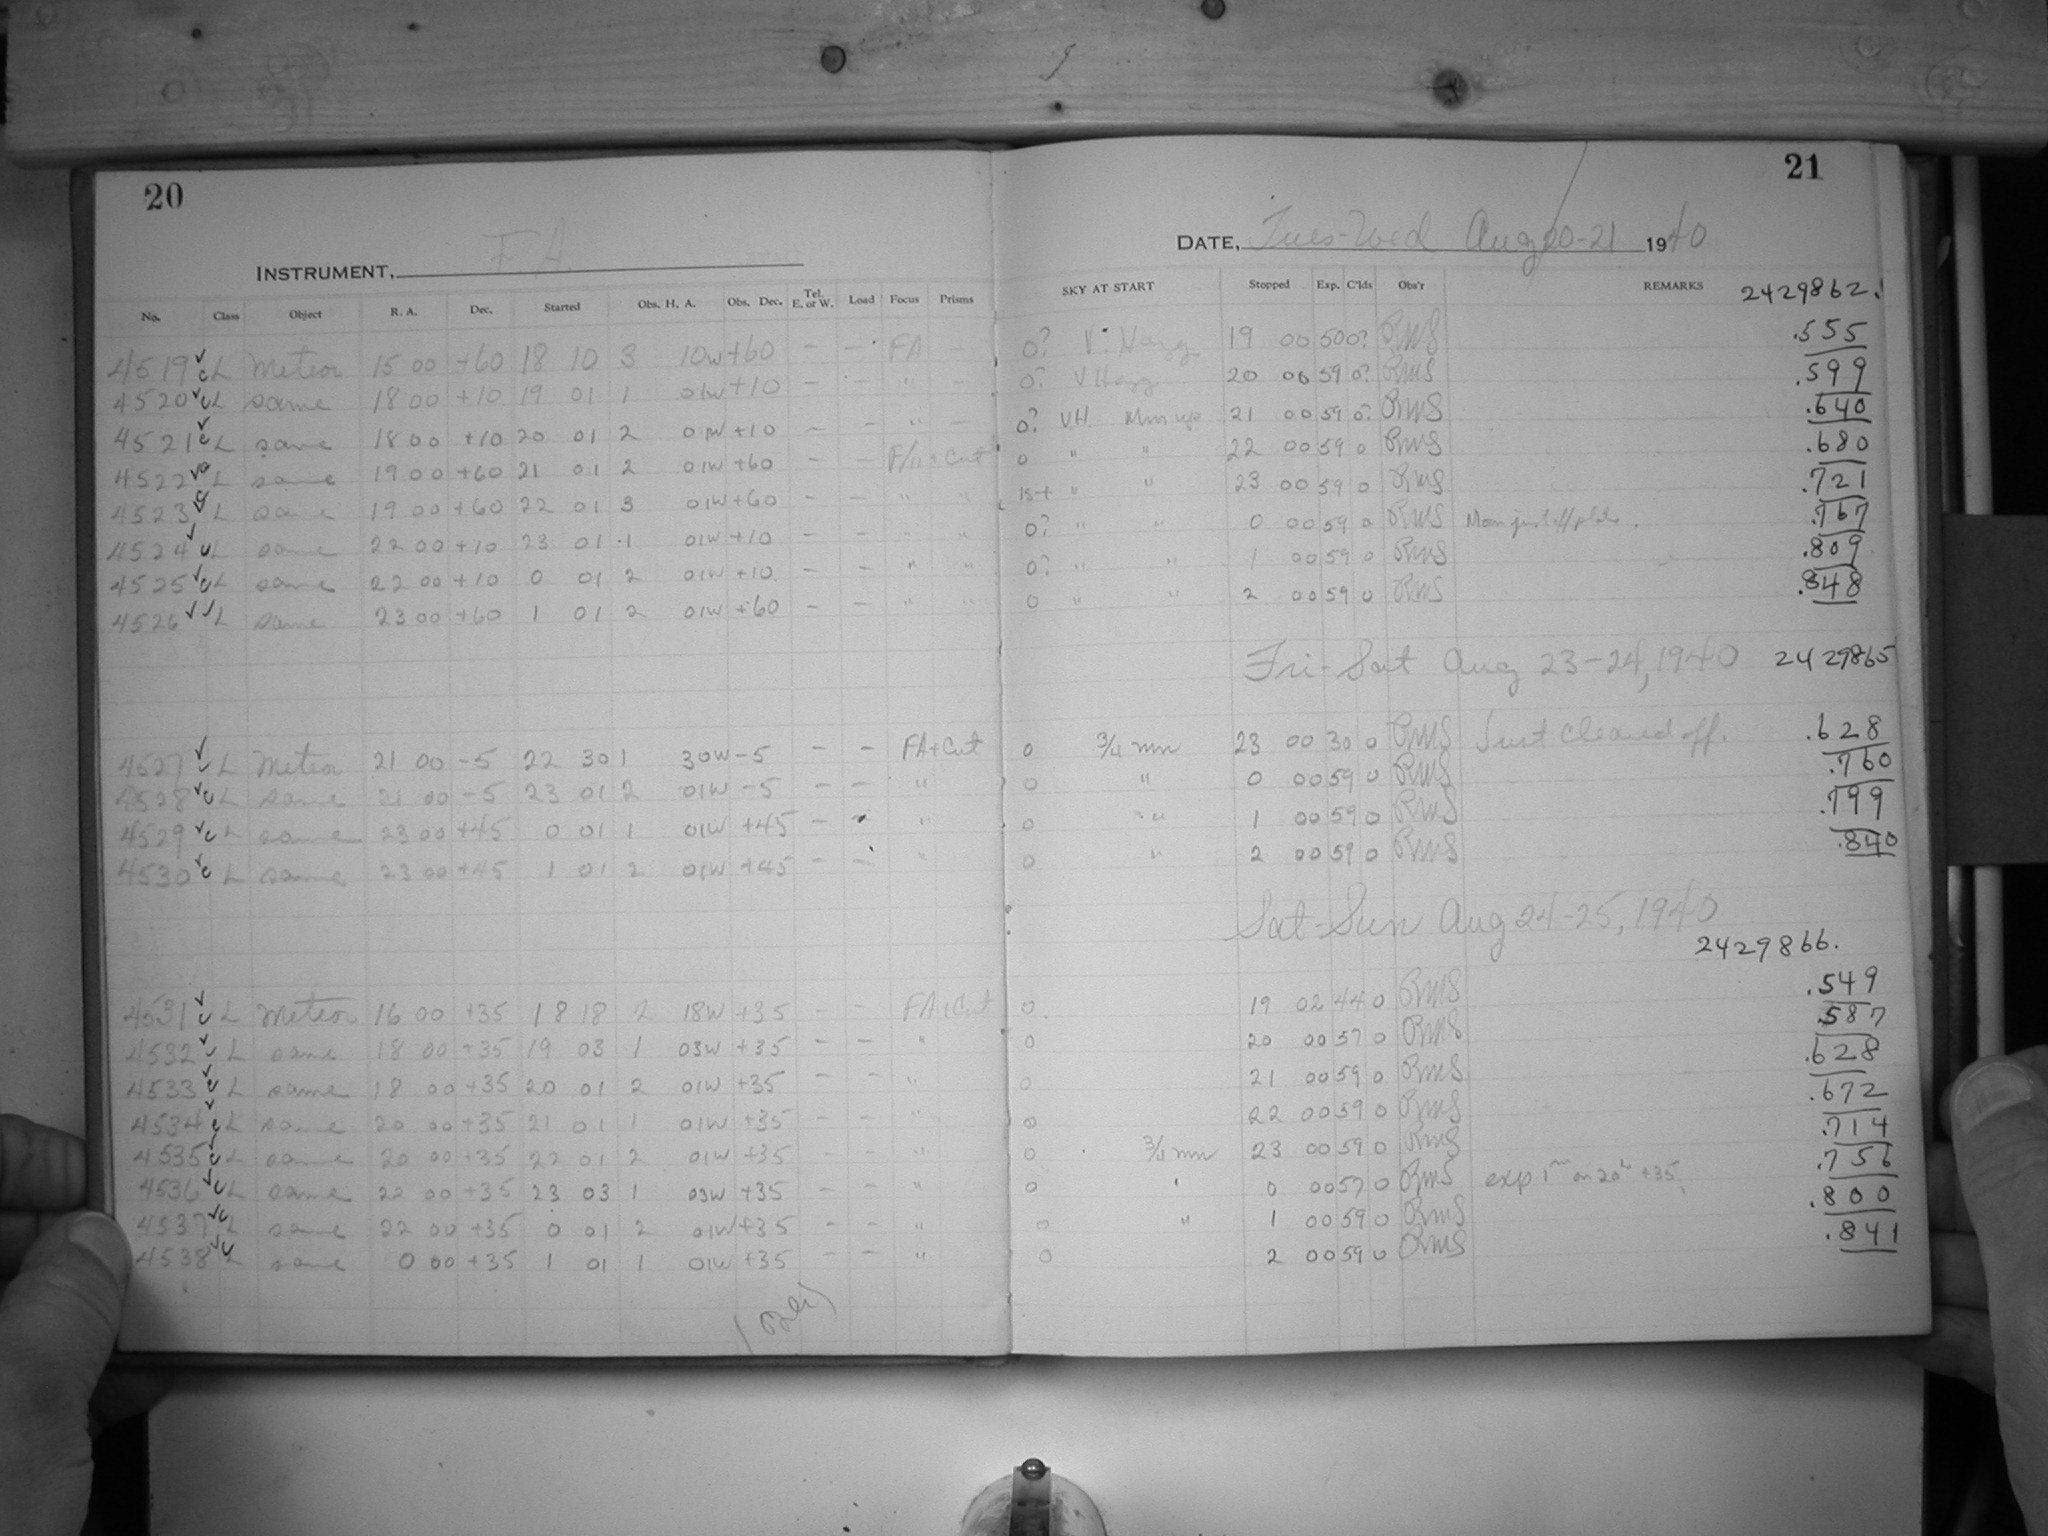 20
21
INSTRUMENT, FA
DATE, Tues-Wed Aug 20-21 1940
No. Class Object R. A. Dec. Started Obs. H. A. Obs. Dec. Tel. E. or W. Load Focus Prisms SKY AT START Stopped Exp. C'lds Obs'r REMARKS 2429862.
4519 L Meteor 15 00 +60 18 10 3 10W +60 - - FA - 0? V. Hazy 19 00 50 0? RMS .555
4520 L same 18 00 +10 19 01 1 01W +10 - - " - 0? V Hazy 20 00 59 0? RMS .599
4521 L same 18 00 +10 20 01 2 01W +10 - - " - 0? V.H. Mn up 21 00 59 0? RMS .640
4522 L same 19 00 +60 21 01 2 01W +60 - - + Cut 0 " " 22 00 59 0 RMS .680
4523 L same 19 00 +60 22 01 3 01W +60 - - " " " " 23 00 59 0 RMS .721
4524 L same 22 00 +10 23 01 1 01W +10 - - " " 0? " " 0 00 59 0 RMS Moon just off plate. .767
4525 L same 22 00 +10 0 01 2 01W +10 - - " " 0? " " 1 00 59 0 RMS .809
4526 L same 23 00 +60 1 01 2 01W +60 - - " " 0 " " 2 00 59 0 RMS .848
Fri-Sat Aug 23-24, 1940 2429865
4527 L Meteor 21 00 -5 22 30 1 30W -5 - - FA+Cut 0 3/4 mn 23 00 30 0 RMS Just cleared off. .628
4528 L same 21 00 -5 23 01 2 01W -5 - - " 0 " 0 00 59 0 RMS .760
4529 L same 23 00 +45 0 01 1 01W +45 - - " 0 " 1 00 59 0 RMS .799
4530 L same 23 00 +45 1 01 2 01W +45 - - " 0 " 2 00 59 0 RMS .840
Sat-Sun Aug 24-25, 1940
2429866.
4531 L Meteor 16 00 +35 18 18 2 18W +35 - - FA+Cut 0 19 02 44 0 RMS .549
4532 L same 18 00 +35 19 03 1 03W +35 - - " 0 20 00 57 0 RMS .587
4533 L same 18 00 +35 20 01 2 01W +35 - - " 0 21 00 59 0 RMS .628
4534 L same 20 00 +35 21 01 1 01W +35 - - " 0 22 00 59 0 RMS .672
4535 L same 20 00 +35 22 01 2 01W +35 - - " 0 3/4 mn 23 00 59 0 RMS .714
4536 L same 22 00 +35 23 03 1 03W +35 - - " 0 " 0 00 57 0 RMS exp 1m on 20h +35. .756
4537 L same 22 00 +35 0 01 2 01W +35 - - " 0 " 1 00 59 0 RMS .800
4538 L same 0 00 +35 1 01 1 01W +35 - - " 0 2 00 59 0 RMS .841